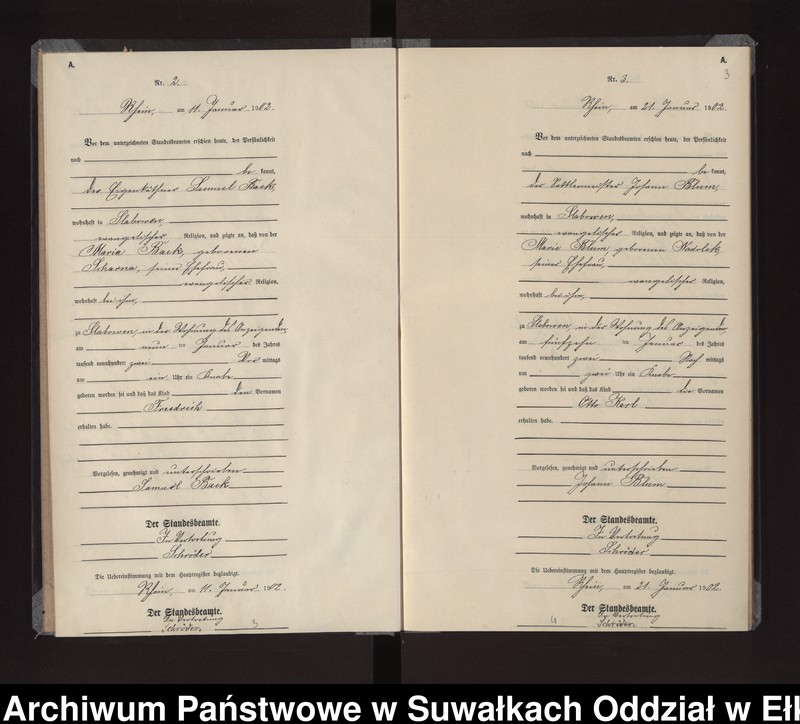 A.
Nr. 2.
Rhein, am 11. Januar 1902.
Vor dem unterzeichneten Standesbeamten erschien heute, der Persönlichkeit
nach
be kannt,
der Eigenkäthner Samuel Back,
wohnhaft in Slabowen,
evangelischer Religion, und zeigte an, daß von der
Maria Back, geborenen
Scharna, seiner Ehefrau,
evangelischer Religion,
wohnhaft bei ihm,
zu Slabowen, in der Wohnung des Anzeigenden,
am neun ten Januar des Jahres
tausend neunhundert zwei Vor mittags
um ein Uhr ein Knabe
geboren worden sei und daß das Kind den Vornamen
Friedrich
erhalten habe.
Vorgelesen, genehmigt und unterschrieben
Samuel Back
Der Standesbeamte.
In Vertretung
Schröder
Die Uebereinstimmung mit dem Hauptregister beglaubigt.
Rhein, am 11. Januar 1902.
Der Standesbeamte.
In Vertretung
Schröder.
3
A.
3
Nr. 3.
Rhein, am 21. Januar 1902.
Vor dem unterzeichneten Standesbeamten erschien heute, der Persönlichkeit
nach
be kannt,
der Sattlermeister Johann Blum,
wohnhaft in Slabowen,
evangelischer Religion, und zeigte an, daß von der
Marie Blum, geborenen
seiner Ehefrau,
evangelischer Religion,
wohnhaft bei ihm,
zu Slabowen, in der Wohnung des Anzeigenden,
am fünfzehn ten Januar des Jahres
tausend neunhundert zwei Nach mittags
um zwei Uhr ein Knabe
geboren worden sei und daß das Kind die Vornamen
Otto Karl
erhalten habe.
Vorgelesen, genehmigt und unterschrieben
Johann Blum
Der Standesbeamte.
In Vertretung
Schröder
Die Uebereinstimmung mit dem Hauptregister beglaubigt.
Rhein, am 21. Januar 1902.
Der Standesbeamte.
In Vertretung
Schröder.
4
Archiwum Państwowe w Suwałkach Oddział w Eł